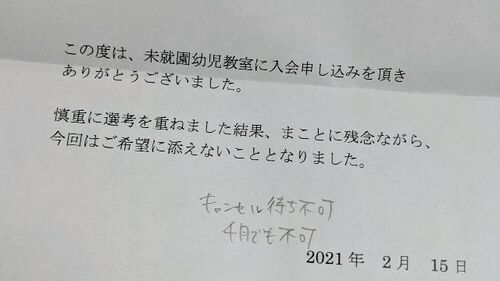 この度は、未就園幼児教室に入会申し込みを頂き
ありがとうございました。
慎重に選考を重ねました結果、まことに残念ながら、
今回はご希望に添えないこととなりました。
キャンセル待ち不可
4月でも不可
2021年 2月 15日